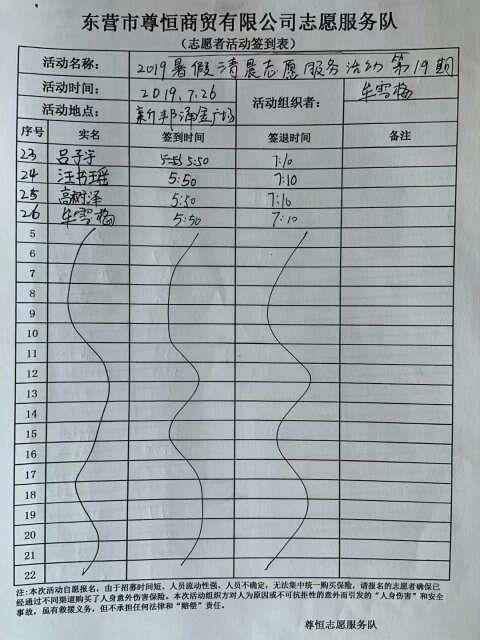 东营市尊恒商贸有限公司志愿服务队
(志愿者活动签到表)
活动名称: 2019暑假清晨志愿服务活动第19期
活动时间: 2019.7.26 活动组织者: 牟雪梅
活动地点: 新邦涌金广场
序号 实名 签到时间 签退时间 备注
23 吕子宇 5:50 7:10
24 汪书瑶 5:50 7:10
25 高树泽 5:50 7:10
26 牟雪梅 5:50 7:10
5
6
7
8
9
10
11
12
13
14
15
16
17
18
19
20
21
22
注:本次活动自愿报名,由于招募时间短、人员流动性强、人员不确定,无法集中统一购买保险,请报名的志愿者确保已
经通过不同渠道购买了人身意外伤害保险。本次活动组织方对人为原因或不可抗拒性的意外而引发的“人身伤害”和安全
事故,虽有救援义务,但不承担任何法律和“赔偿”责任。
尊恒志愿服务队